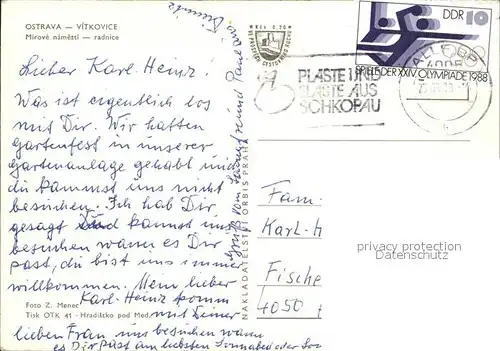 OSTRAVA — VÍTKOVICE
Mírové náměstí — radnice
Lieber Karl-Heinz!
Was ist eigentlich los
mit Dir. Wir hatten
Gartenfest in unserer
Gartenanlage gehabt und
du kammst uns nicht
besuchen. Ich hab Dir
gesagt Du kannst uns
besuchen wann es Dir
past, du bist uns immer
willkommen. Mein lieber
Karl-Heinz komm
mit Deiner
lieben Frau uns besuchen wann
es Dir past am liebsten Sonnabed oder So
Foto Z. Menec
Tisk OTK 41 - Hradištko pod Med.
NAKLADATELSTVÍ ORBIS PRA
Kčs 0,20
DDR 10
SPIELE DER XXIV. OLYMPIADE 1988
PLASTE UND
ELASTE AUS
SCHKOPAU
Fam.
Karl-H
Fische
4050
privacy protection
Datenschutz